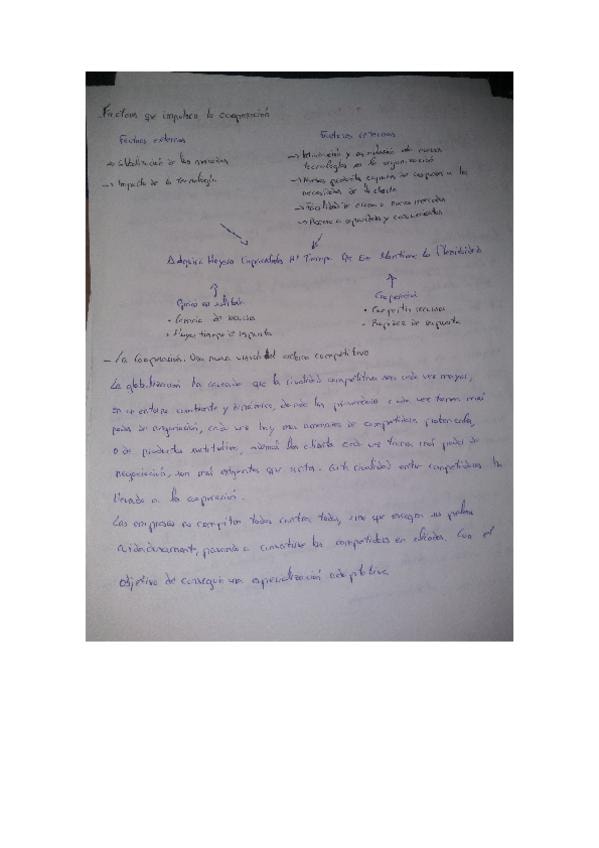 Factores que impulsan la cooperación
Factores externos
Factores internos
→ Globalización de los mercados
→ Impacto de la Tecnología
→ y de nuevas
tecnologías en la organización
→ Nuevos productos capaces de a las
necesidades de la clientela
→ Facilidad de acceso a nuevos mercados
→ Acceso a capacidades y conocimientos
Adquirir Mayores Capacidades Al Tiempo Que Se Mantiene La Flexibilidad
Crecimiento
• Carencia de recursos
• Mayor tiempo de respuesta
Cooperación
• Compartir recursos
• Rapidez de respuesta
- La Cooperación. Una nueva visión del entorno competitivo
La globalización ha causado que la rivalidad competitiva sea cada vez mayor,
en un entorno cambiante y dinámico, donde los proveedores cada vez tienen más
poder de negociación, cada vez hay más amenazas de competidores potenciales,
o de productos sustitutivos, además los clientes cada vez tienen más poder de
negociación, son más exigentes que antes. Esta rivalidad entre competidores ha
llevado a la cooperación.
Las empresas no compiten todas contra todas, sino que escogen su
cuidadosamente, pasando a convertirse los competidores en aliados. Con el
objetivo de conseguir una especialización adaptativa